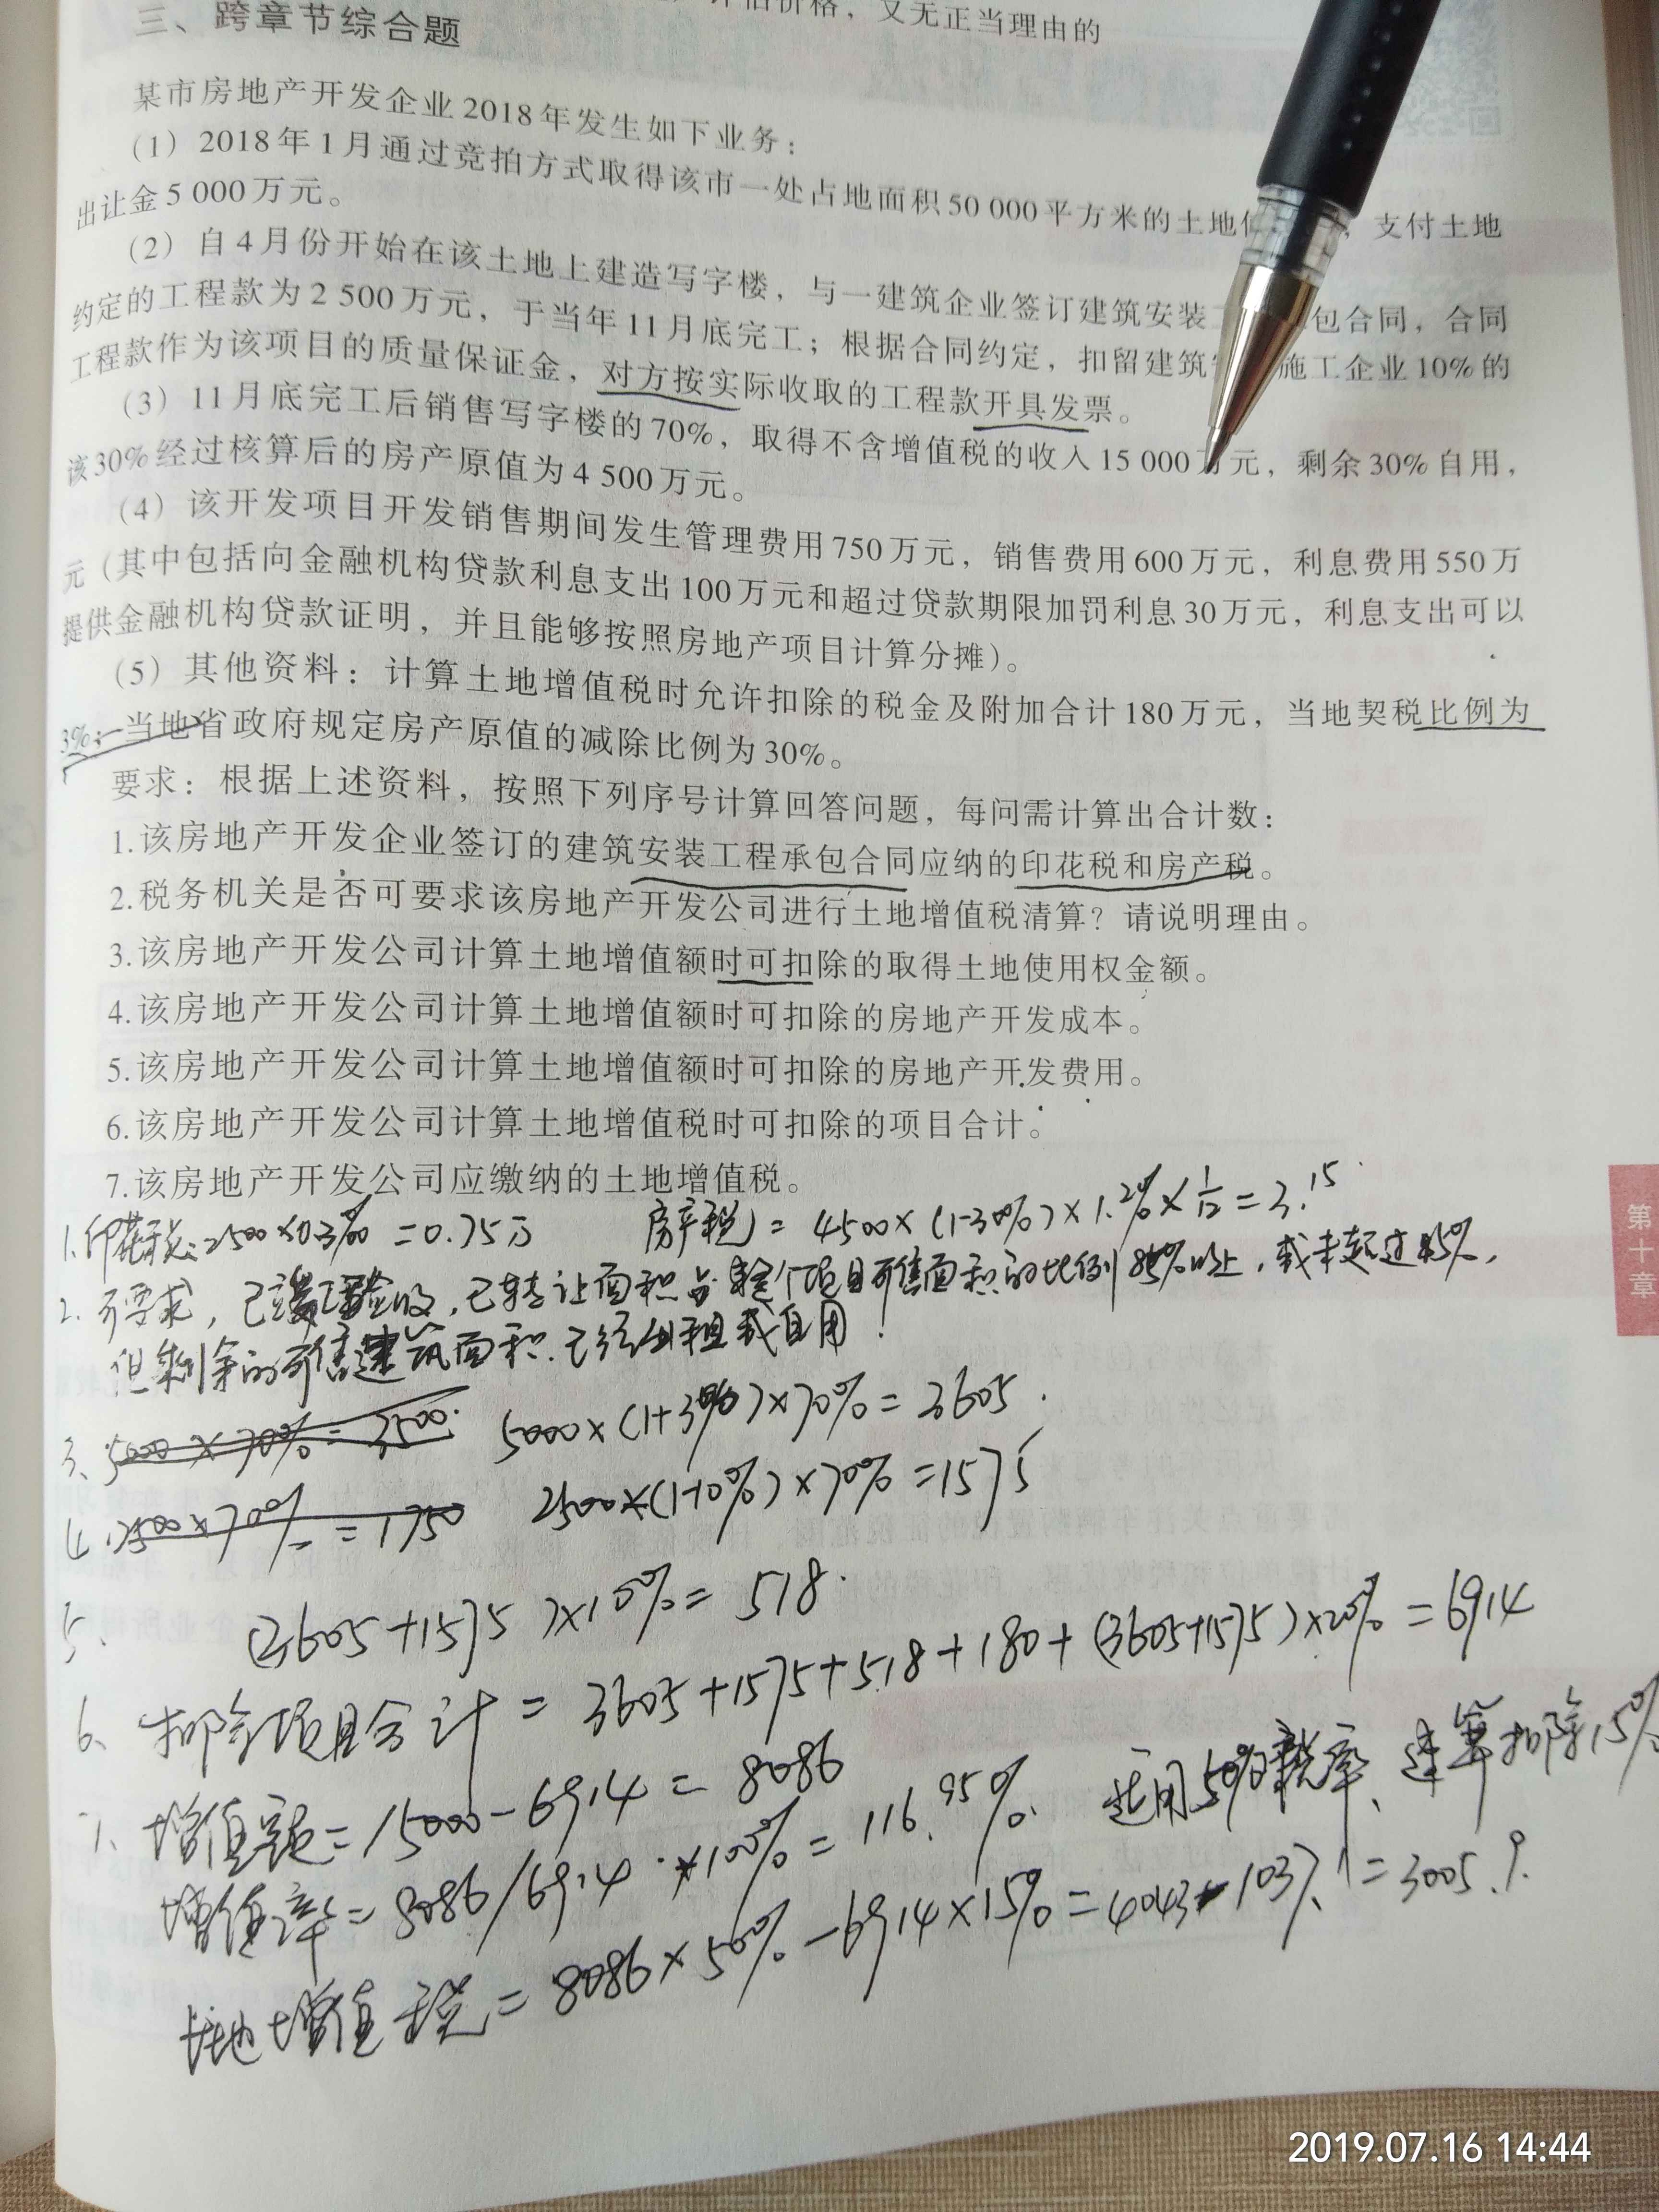 评估价格，又无正当理由的
三、跨章节综合题
某市房地产开发企业2018年发生如下业务：
（1）2018年1月通过竞拍方式取得该市一处占地面积50 000平方米的土地 ，支付土地
出让金5 000万元。
（2）自4月份开始在该土地上建造写字楼，与一建筑企业签订建筑安装 包合同，合同
约定的工程款为2 500万元，于当年11月底完工；根据合同约定，扣留建筑 施工企业10%的
工程款作为该项目的质量保证金，对方按实际收取的工程款开具发票。
（3）11月底完工后销售写字楼的70%，取得不含增值税的收入15 000万元，剩余30%自用，
该30%经过核算后的房产原值为4 500万元。
（4）该开发项目开发销售期间发生管理费用750万元，销售费用600万元，利息费用550万
元（其中包括向金融机构贷款利息支出100万元和超过贷款期限加罚利息30万元，利息支出可以
提供金融机构贷款证明，并且能够按照房地产项目计算分摊）。
（5）其他资料：计算土地增值税时允许扣除的税金及附加合计180万元，当地契税比例为
3%；当地省政府规定房产原值的减除比例为30%。
要求：根据上述资料，按照下列序号计算回答问题，每问需计算出合计数：
1.该房地产开发企业签订的建筑安装工程承包合同应纳的印花税和房产税。
2.税务机关是否可要求该房地产开发公司进行土地增值税清算？请说明理由。
3.该房地产开发公司计算土地增值额时可扣除的取得土地使用权金额。
4.该房地产开发公司计算土地增值额时可扣除的房地产开发成本。
5.该房地产开发公司计算土地增值额时可扣除的房地产开发费用。
6.该房地产开发公司计算土地增值税时可扣除的项目合计。
7.该房地产开发公司应缴纳的土地增值税。
第十章
1.印花税：2500×0.3‰=0.75万 房产税）= 4500×（1-30%）×1.2%×1/12=3.15
2.可要求，已 验收，已转让面积占整个项目可售面积的比例85%以上，或未超过85%，
但剩余的可售建筑面积已经出租或自用！
3、5000×70%=3500. 5000×（1+3%）×70%=3605.
4.2500×70%=1750 2500×（1-10%）×70%=1575
5. （3605+1575）×10%=518.
6、扣除项目合计=3605+1575+518+180+（3605+1575）×20%=6914
7、增值额=15000-6914=8086
增值率=8086/6914×100%=116.95%. 适用50%税率、速算扣除15%
土地增值税=8086×50%-6914×15%=4043-1037.1=3005.9.
2019.07.16 14:44